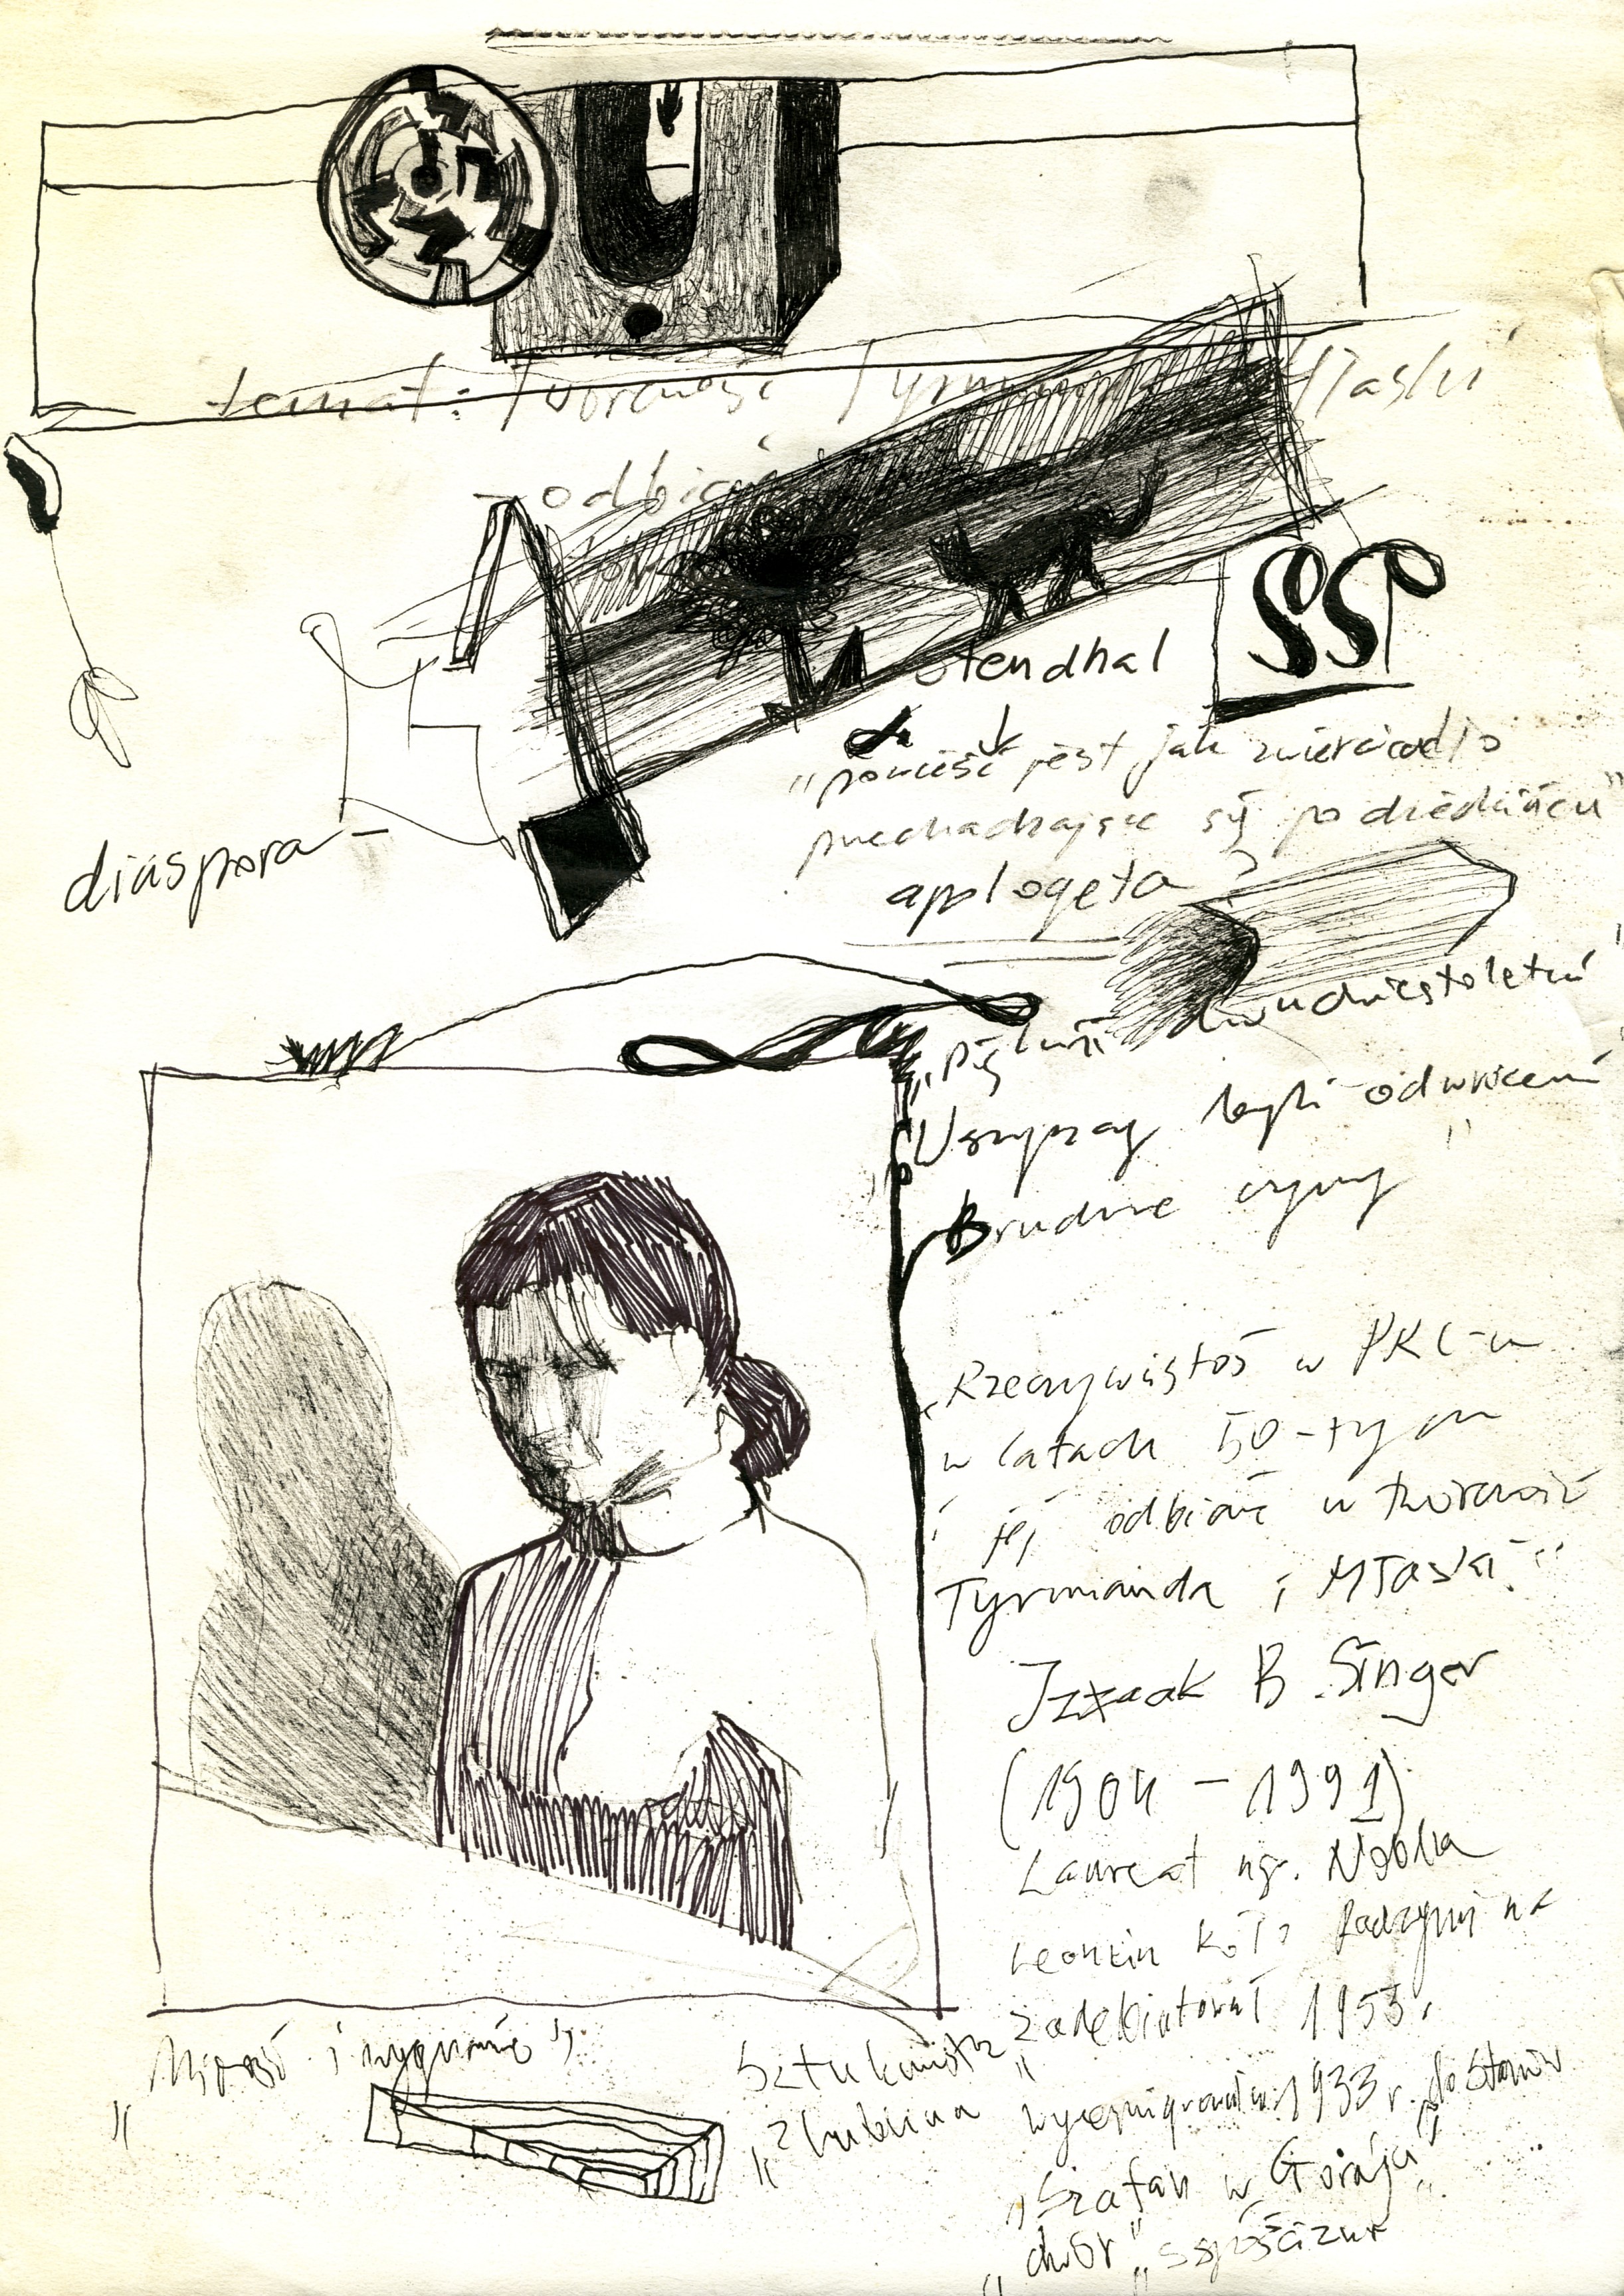 temat: Twórczość Tyrmanda Hłaski
odbicie
Stendhal
SSP
"powieść jest jak zwierciadło
przechadzające się po gościńcu"
diaspora
apologeta ?
"Piękni dwudziestoletni"
"Wszyscy byli odwróceni"
Brudne czyny
"Rzeczywistoś w PRL-u
w latach 50-tych
i jej odbicie w twórczość
Tyrmanda i Hłaski."
Izaak B. Singer
(1904 - 1991)
Laureat ng. Nobla
Leoncin koło Radzymina
zadebiutował 1953r.
"Miłość i wygnanie"
Sztukmistrz
"z Lublina
wyemigrował w 1933 r. do Stanów
"Szatan w Goraju"
"dwór" "spuścizna